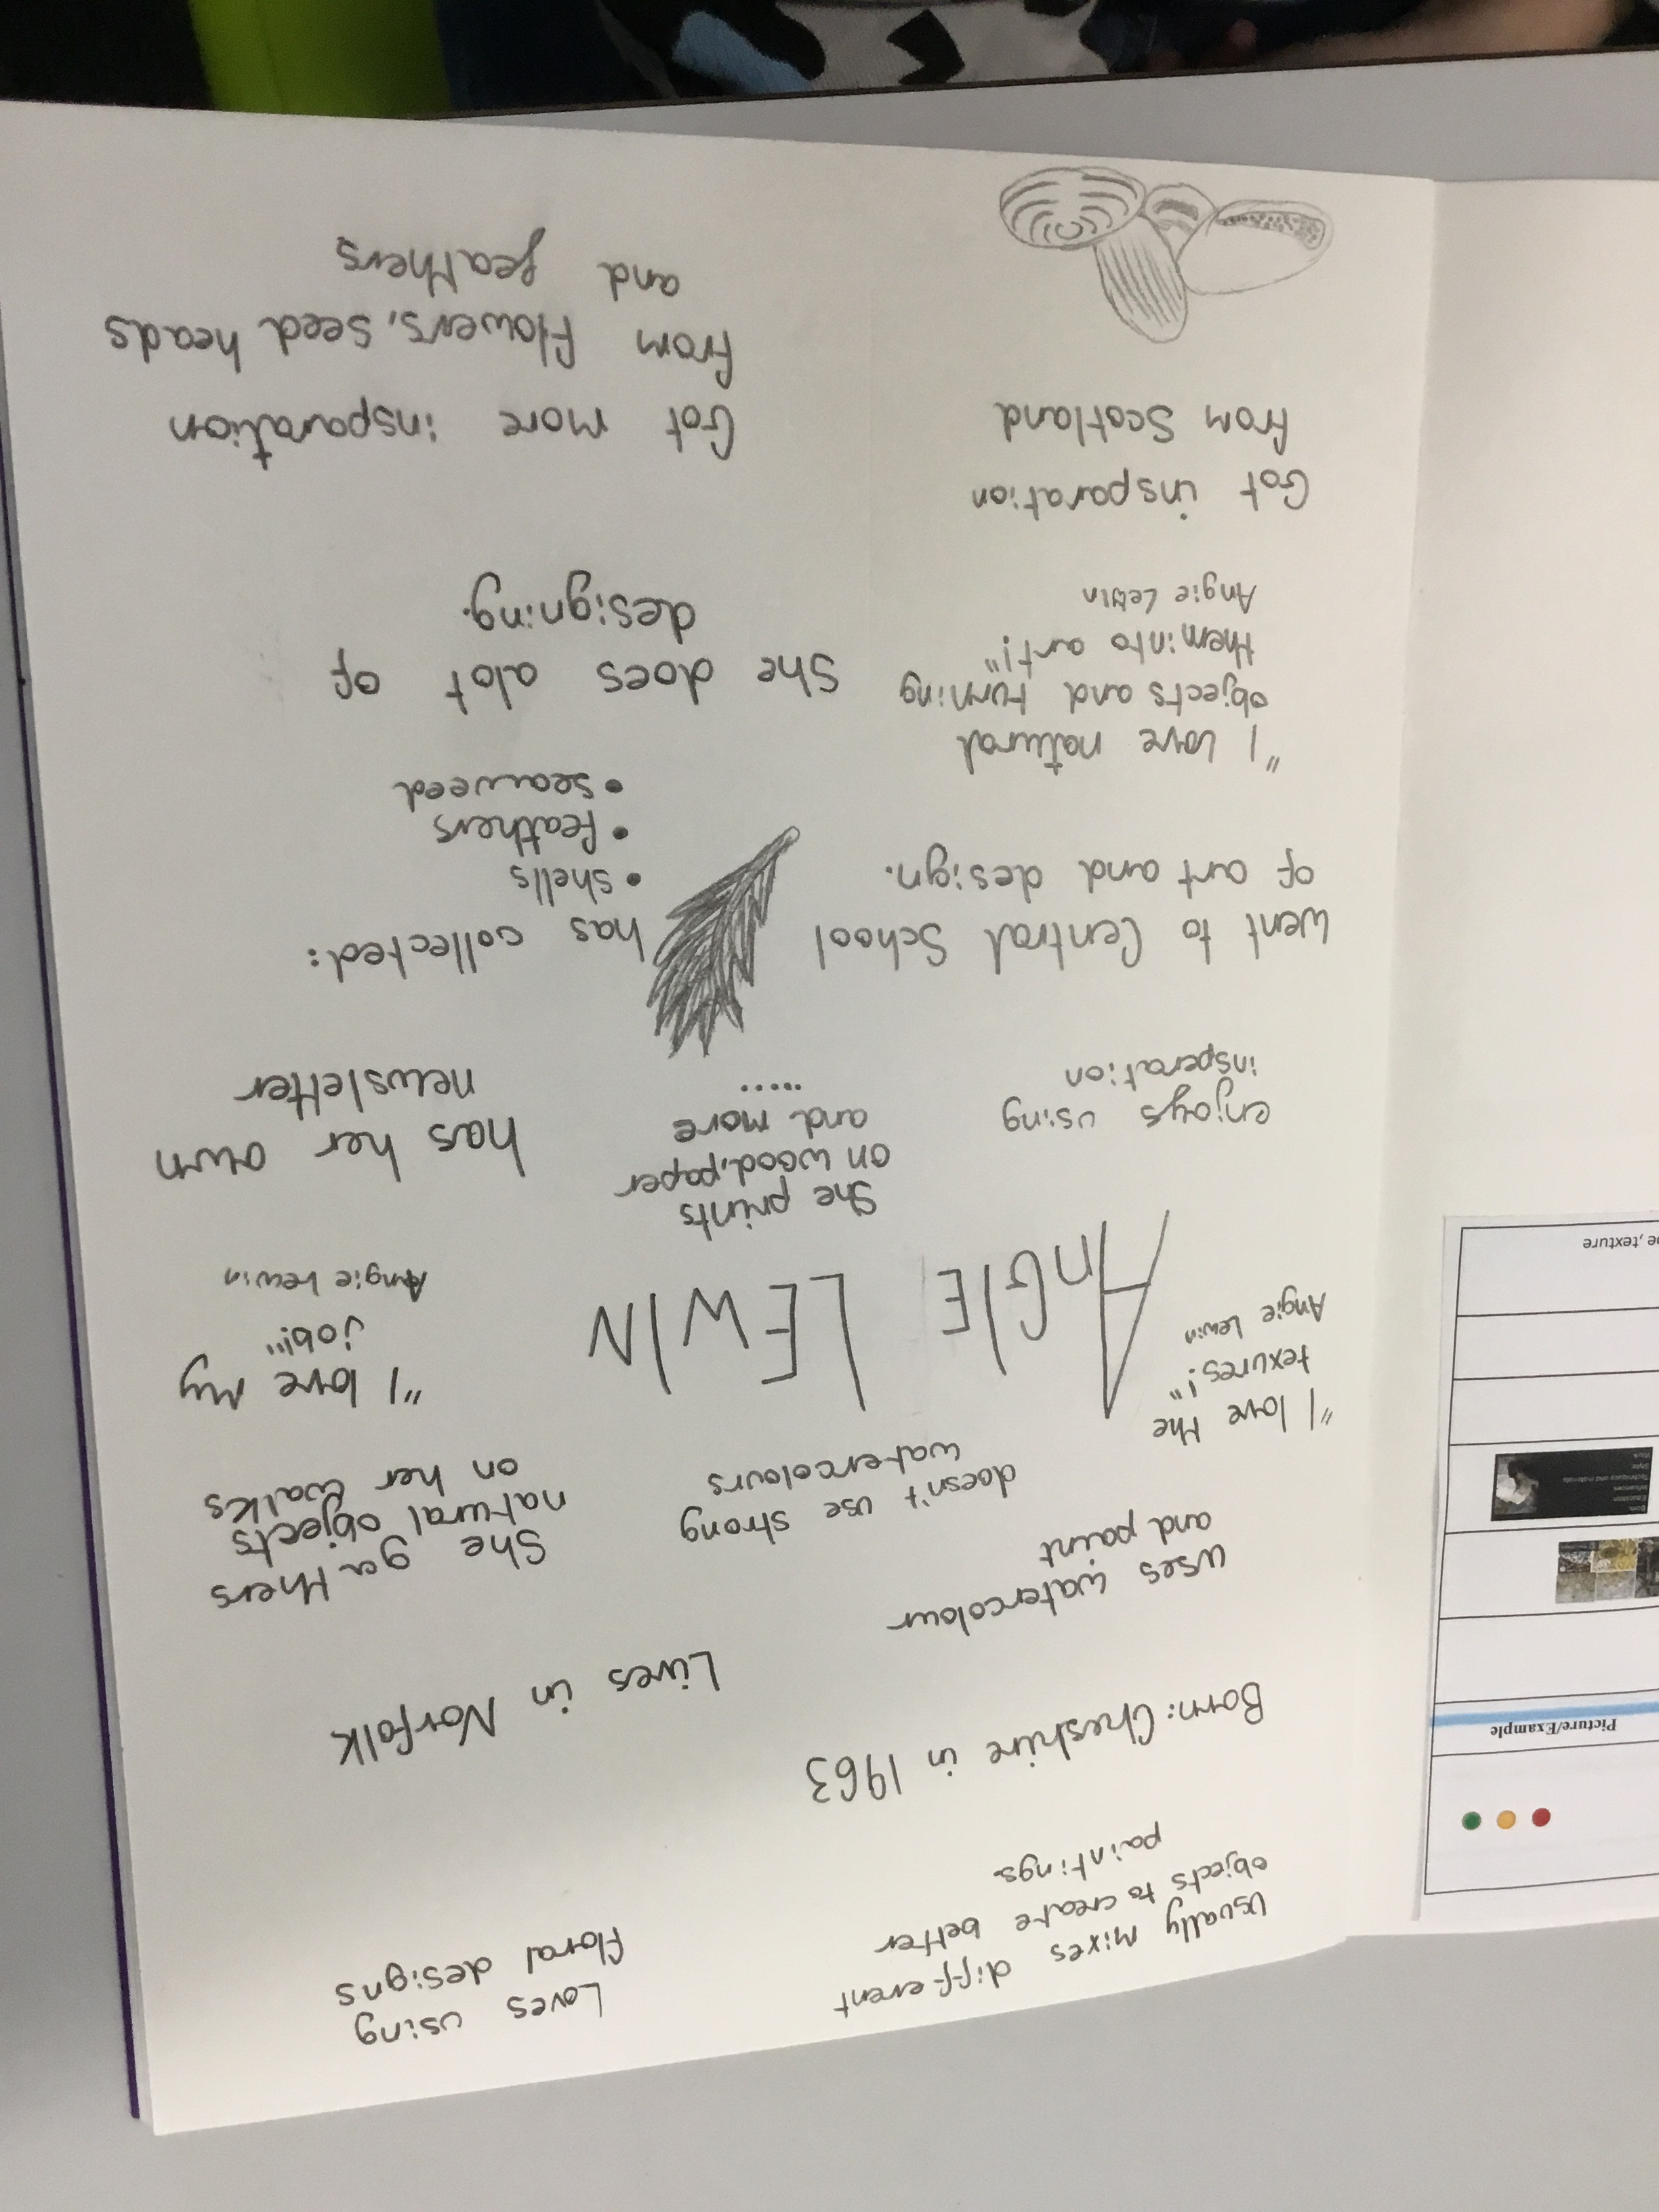 usually mixes different
objects to create better
paintings.
Loves using
floral designs
Born: Cheshire in 1963
Lives in Norfolk
uses watercolour
and paint
doesn't use strong
watercolours
She gathers
natural objects
on her walks
"I love the
texures!"
Angie Lewin
ANGIE LEWIN
"I love my
job!"
Angie Lewin
enjoys using
insperation
She prints
on wood, paper
and more
.....
has her own
newsletter
went to Central School
of art and design.
has collected:
• shells
• feathers
• seaweed
"I love natural
objects and turning
them into art!"
Angie Lewin
She does alot of
designing.
Got insparation
from Scotland
Got more insparation
from flowers, seed heads
and feathers
Picture/Example
Techniques and materials
, texture